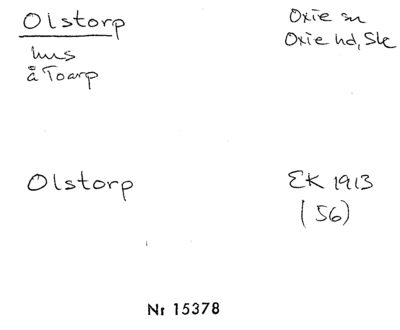 Olstorp
hus
å Toarp
Oxie sn
Oxie hd, Sk
Olstorp
EK 1913
(56)
Nr 15378